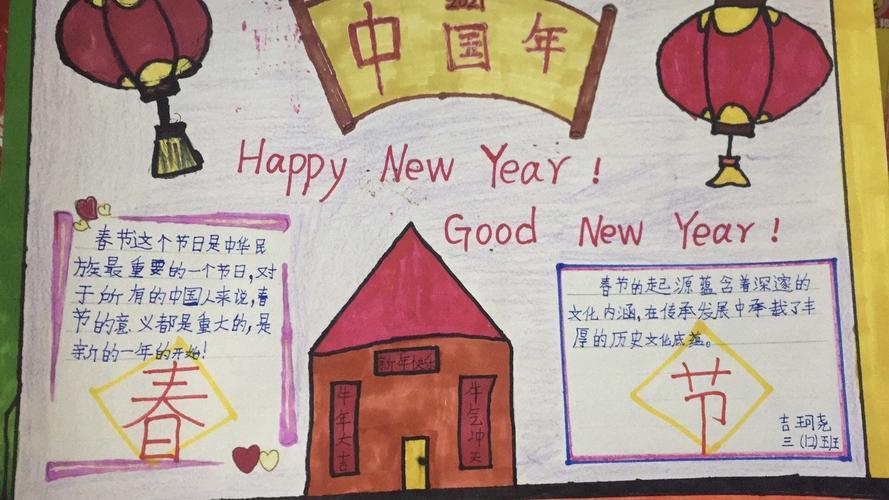 2021
中国年
Happy New Year !
Good New Year !
春节这个节日是中华民
族最重要的一个节日,对
于所有的中国人来说,春
节的意义都是重大的,是
新的一年的开始!
春
新年快乐
牛年大吉
牛气冲天
春节的起源蕴含着深邃的
文化内涵,在传承发展中承载了丰
厚的历史文化底蕴。
节
吉珂尧
三(12)班